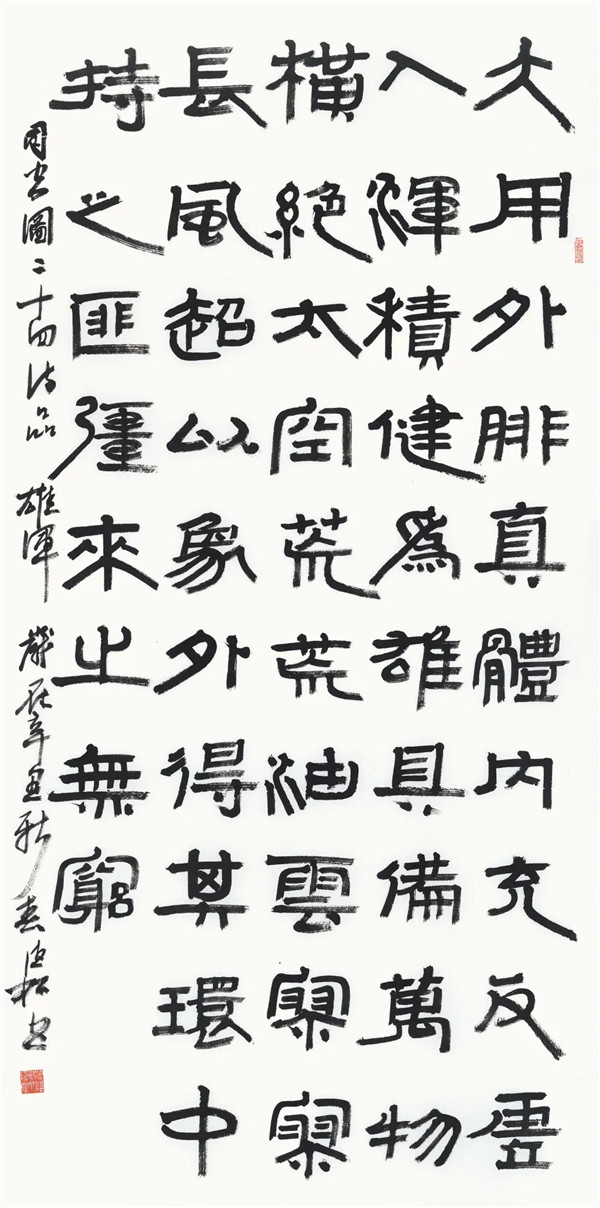 大用外腓真體內充反虛
入渾積健爲雄具備萬物
橫絕太空荒荒油雲寥寥
長風超以象外得其環中
持之匪彊來之無窮
司空圖二十四詩品 雄渾 歲在辛丑秋 書